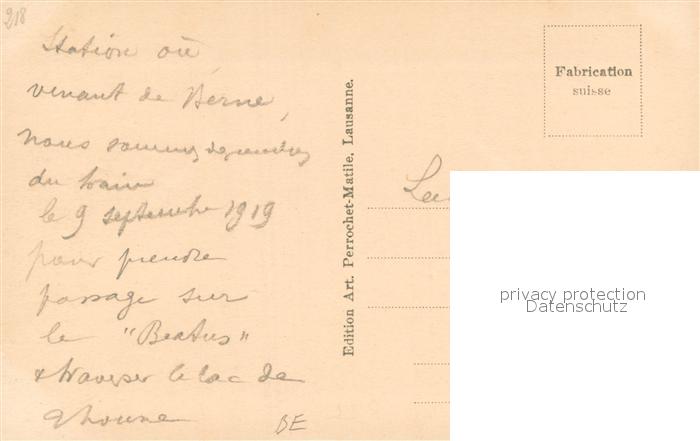 218
Station où,
venant de Berne,
nous sommes descendus
du train
le 9 septembre 1919
pour prendre
passage sur
le "Beatus"
& traverser le lac de
Thoune
BE
Edition Art. Perrochet-Matile, Lausanne.
Fabrication
suisse
privacy protection
Datenschutz